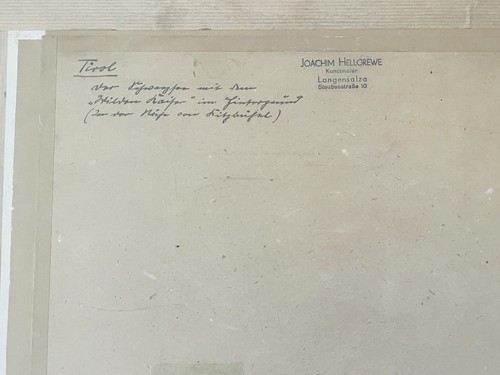 Tirol
Der Schwarzsee mit dem
„Wilden Kaiser" im Hintergrund
(In der Nähe von Kitzbühel)
JOACHIM HELLGREWE
Kunstmaler
Langensalza
Steubenstraße 10